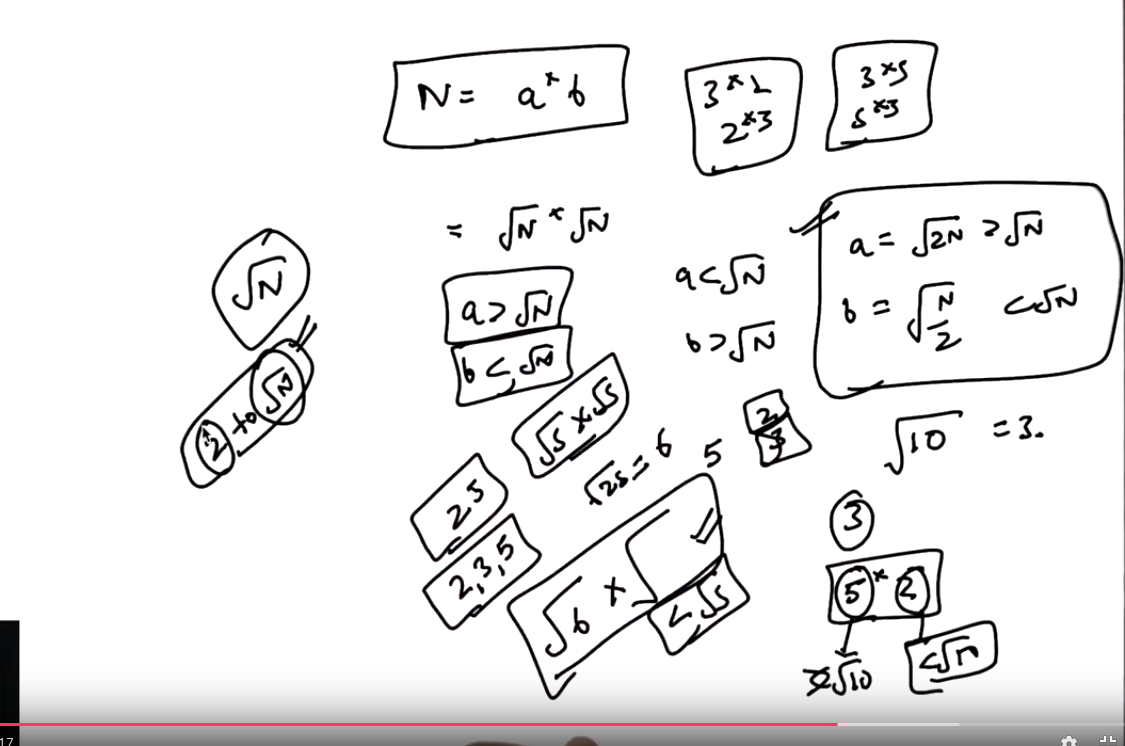 N = a * b
3 * 2
2 * 3
3 * 5
5 * 3
= √N * √N
√N
a > √N
b < √N
a < √N
b > √N
a = √2N > √N
b = √N/2 < √N
2 to √N
√5 * √5
√25 =
5
2
3
√10 = 3.
2, 5
2, 3, 5
3
5 * 2
< √5
√10
< √n
17